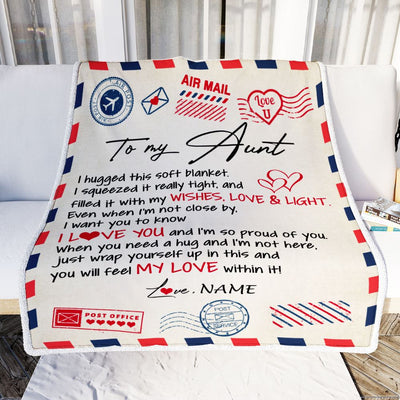 AIR POST
AIR MAIL
Love
U
To my Aunt
I hugged this soft blanket.
I squeezed it really tight, and
filled it with my WISHES, LOVE & LIGHT.
Even when I'm not close by.
I want you to know
I LOVE YOU and I'm so proud of you.
When you need a hug and I'm not here,
just wrap yourself up in this and
you will feel MY LOVE within it!
Love, NAME
POST OFFICE
POST SERVICE